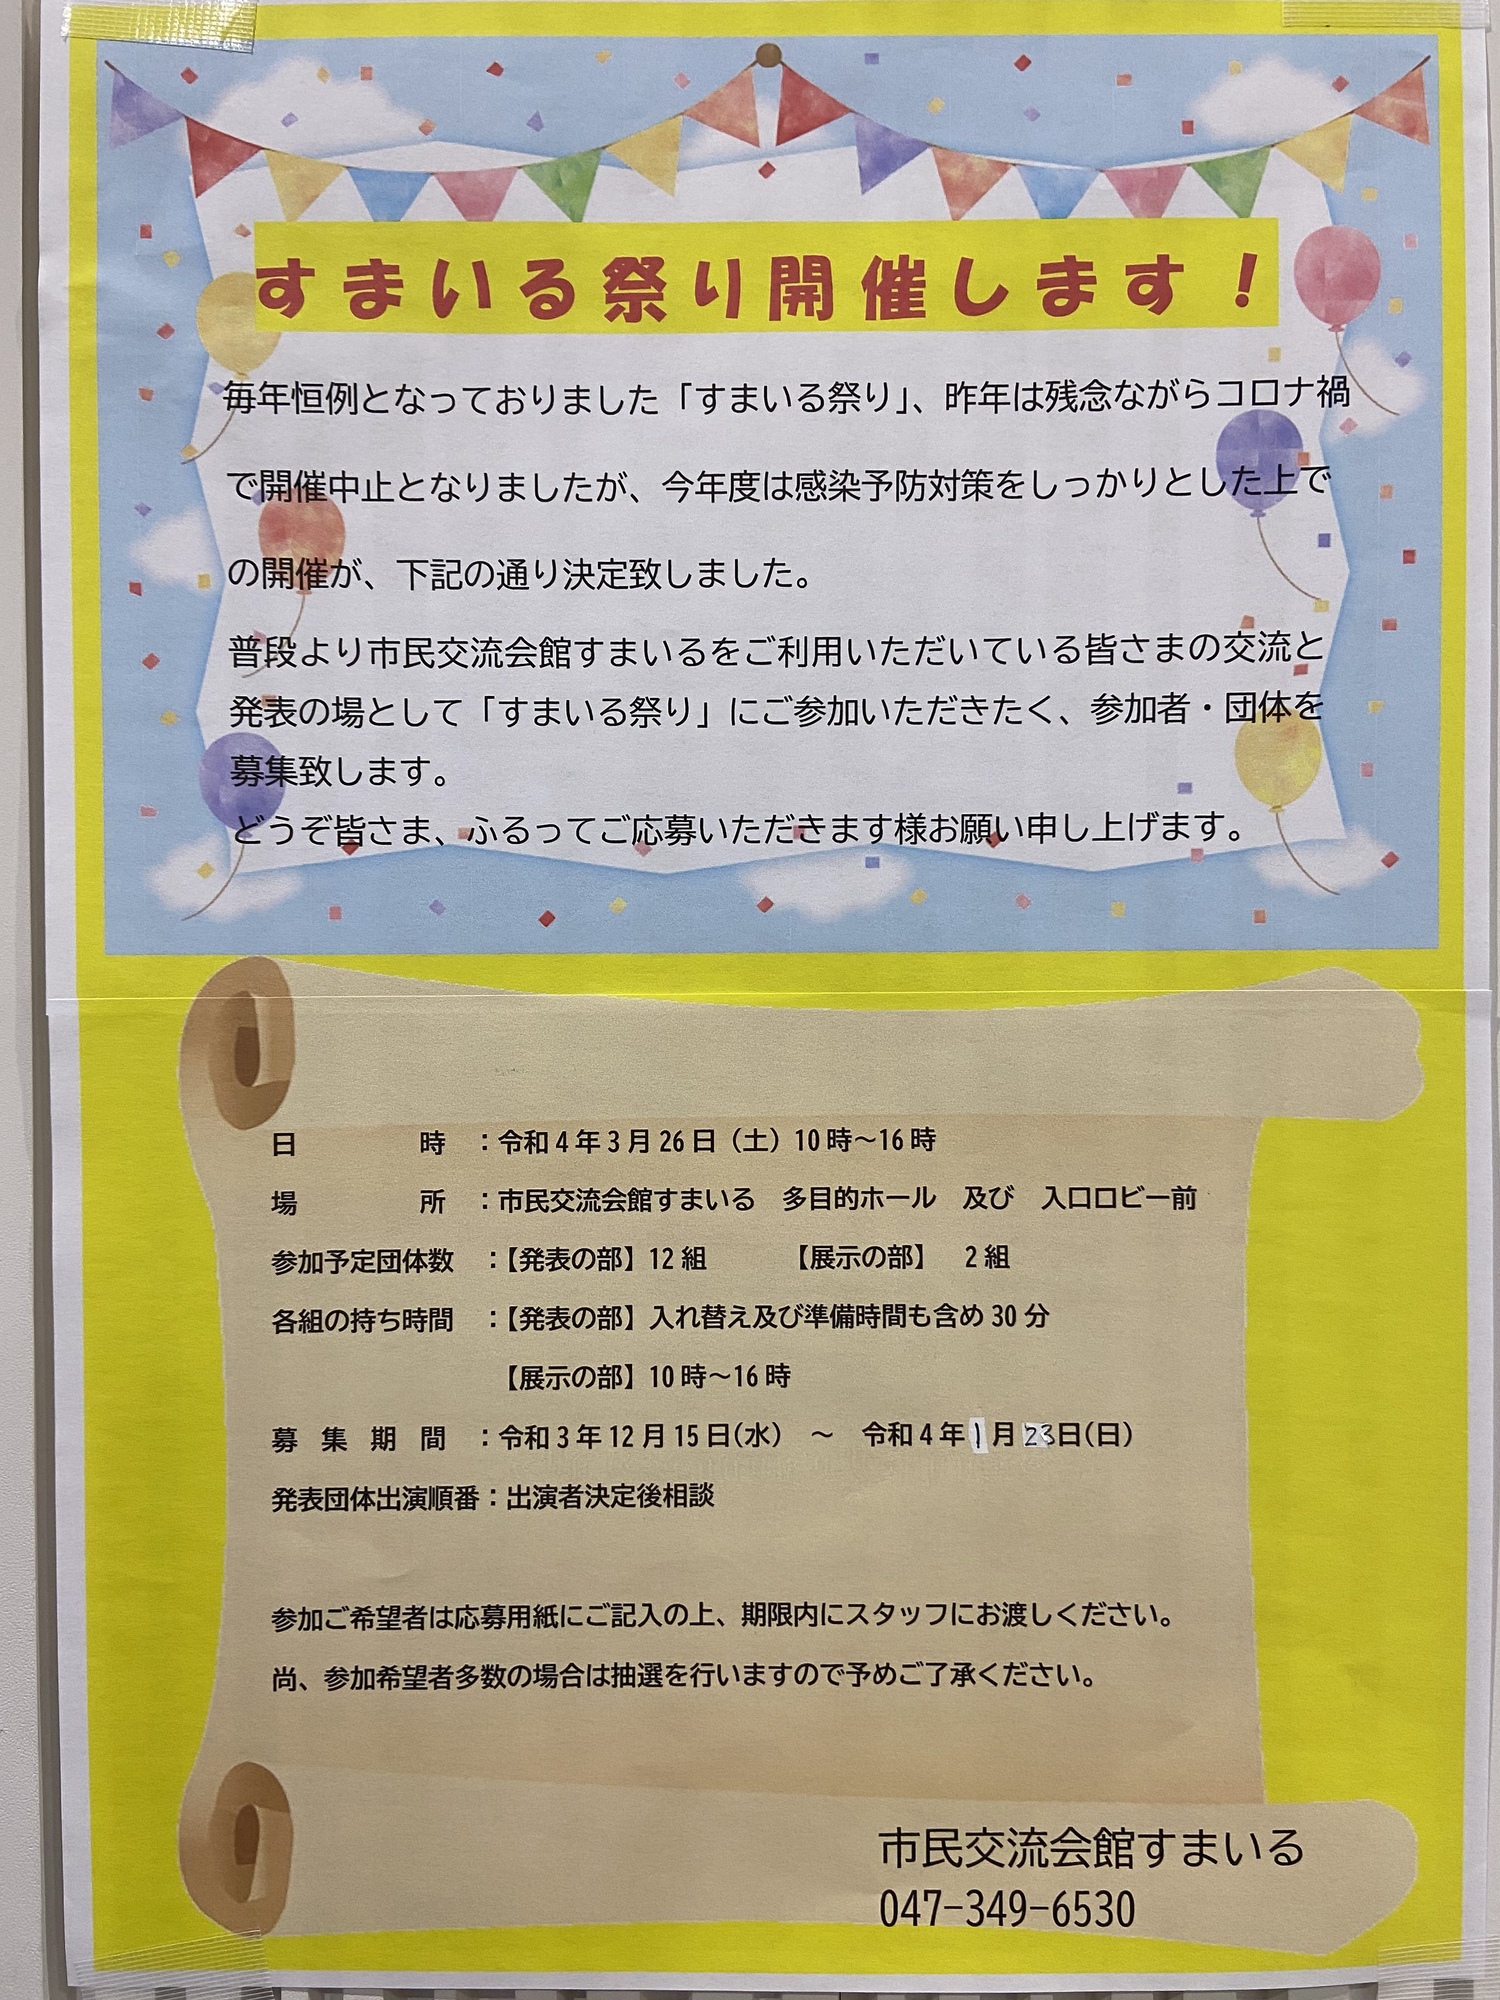 すまいる祭り開催します！
毎年恒例となっておりました「すまいる祭り」、昨年は残念ながらコロナ禍
で開催中止となりましたが、今年度は感染予防対策をしっかりとした上で
の開催が、下記の通り決定致しました。
普段より市民交流会館すまいるをご利用いただいている皆さまの交流と
発表の場として「すまいる祭り」にご参加いただきたく、参加者・団体を
募集致します。
どうぞ皆さま、ふるってご応募いただきます様お願い申し上げます。
日　　　　時　：令和4年3月26日（土）10時～16時
場　　　　所　：市民交流会館すまいる　多目的ホール　及び　入口ロビー前
参加予定団体数　：【発表の部】12組　　　【展示の部】　2組
各組の持ち時間　：【発表の部】入れ替え及び準備時間も含め30分
【展示の部】10時～16時
募 集 期 間　：令和3年12月15日(水)　～　令和4年1月23日(日)
発表団体出演順番：出演者決定後相談
参加ご希望者は応募用紙にご記入の上、期限内にスタッフにお渡しください。
尚、参加希望者多数の場合は抽選を行いますので予めご了承ください。
市民交流会館すまいる
047-349-6530